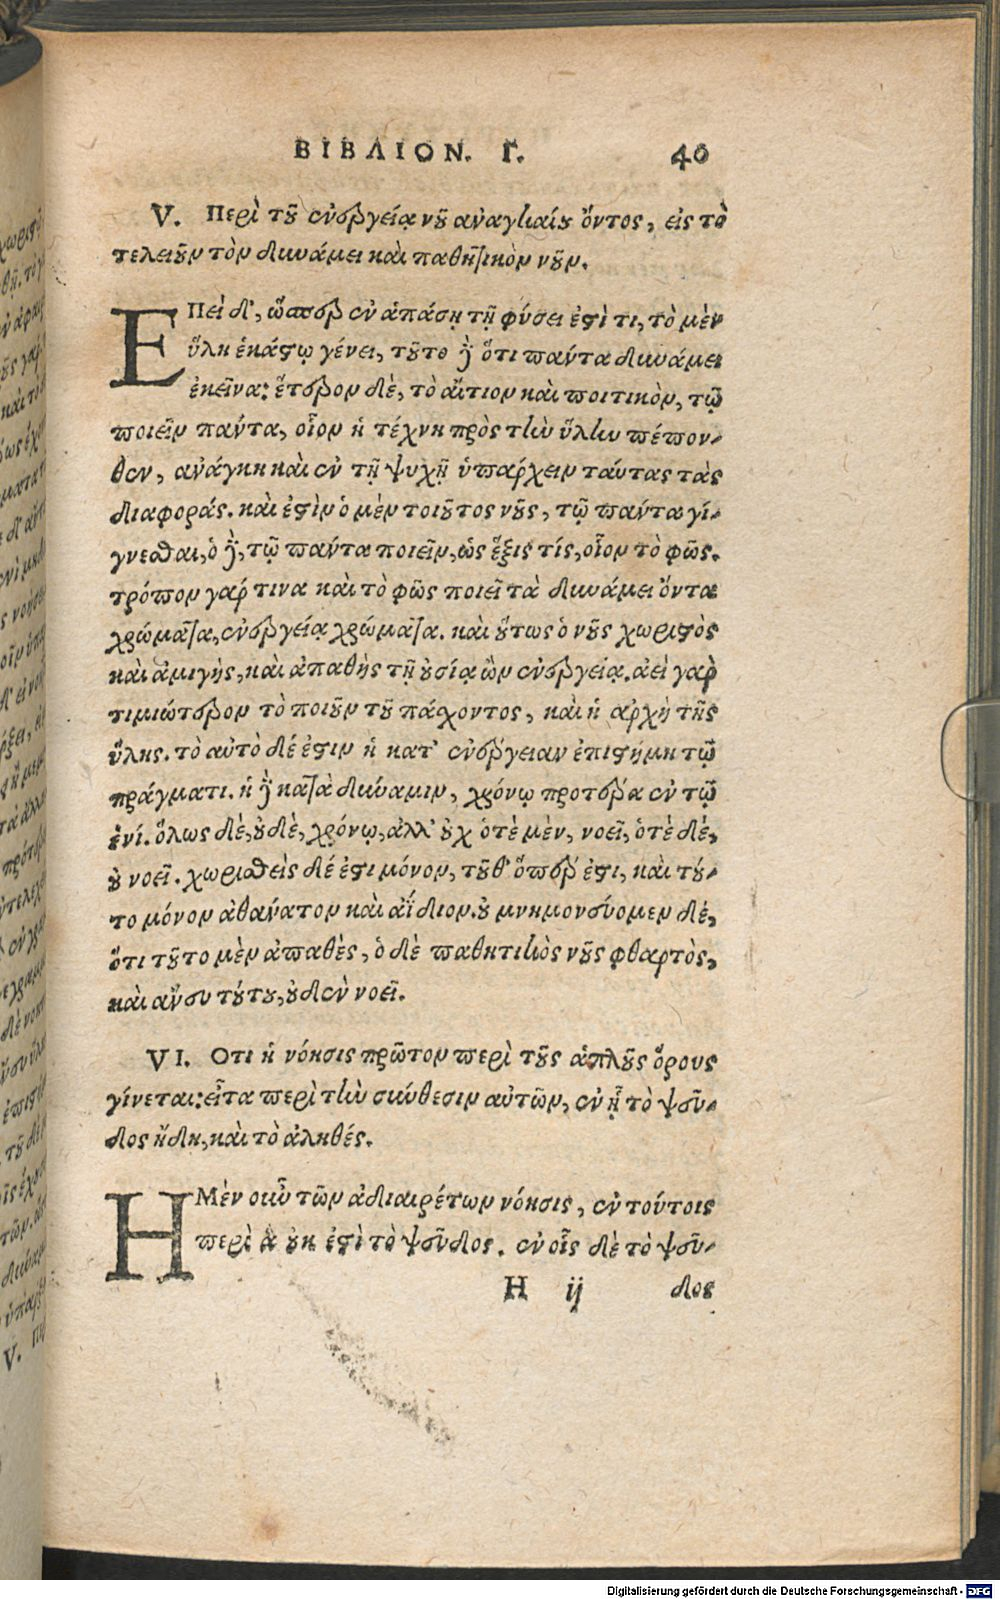 ΒΙΒΛΙΟΝ. Γ. 40
V. Περὶ τοῦ ἐνεργείᾳ νοῦ ἀναγκαίου ὄντος, εἰς τὸ
τελειοῦν τὸν δυνάμει καὶ παθητικὸν νοῦν.
ΕΠεὶ δ', ὥσπερ ἐν ἁπάσῃ τῇ φύσει ἐστὶ τι, τὸ μὲν
ὕλη ἑκάστῳ γένει, τοῦτο δὲ ὅτι πάντα δυνάμει
ἐκεῖνα: ἕτερον δὲ, τὸ αἴτιον καὶ ποιτικὸν, τῷ
ποιεῖν πάντα, οἷον ἡ τέχνη πρὸς τὴν ὕλην πέπον-
θεν, ἀνάγκη καὶ ἐν τῇ ψυχῇ ὑπάρχειν ταύτας τὰς
διαφοράς. καὶ ἐστὶν ὁ μὲν τοιοῦτος νοῦς, τῷ πάντα γί-
γνεσθαι, ὁ δὲ, τῷ πάντα ποιεῖν, ὡς ἕξις τίς, οἷον τὸ φῶς.
τρόπον γάρ τινα καὶ τὸ φῶς ποιεῖ τὰ δυνάμει ὄντα
χρώματα, ἐνεργείᾳ χρώματα. καὶ οὕτως ὁ νοῦς χωριστὸς
καὶ ἀμιγὴς, καὶ ἀπαθὴς τῇ οὐσίᾳ ὢν ἐνεργείᾳ. ἀεὶ γὰρ
τιμιώτερον τὸ ποιοῦν τοῦ πάσχοντος, καὶ ἡ ἀρχὴ τῆς
ὕλης. τὸ αὐτὸ δέ ἐστιν ἡ κατ' ἐνέργειαν ἐπιστήμη τῷ
πράγματι. ἡ δὲ κατὰ δύναμιν, χρόνῳ προτέρα ἐν τῷ
ἑνί. ὅλως δὲ, οὐδὲ, χρόνῳ, ἀλλ' οὐχ ὁτὲ μὲν, νοεῖ, ὁτὲ δὲ,
οὐ νοεῖ. χωρισθεὶς δέ ἐστι μόνον, τοῦθ' ὅπερ ἐστι, καὶ τοῦ-
το μόνον ἀθάνατον καὶ ἀΐδιον. οὐ μνημονεύομεν δὲ,
ὅτι τοῦτο μὲν ἀπαθὲς, ὁ δὲ παθητικὸς νοῦς φθαρτὸς,
καὶ ἄνευ τούτου, οὐδὲν νοεῖ.
VI. Οτι ἡ νόησις πρῶτον περὶ τοὺς ἁπλοῦς ὅρους
γίνεται: εἶτα περὶ τὴν σύνθεσιν αὐτῶν, ἐν ᾗ τὸ ψεῦ-
δος ἤδη, καὶ τὸ ἀληθές.
Η Μὲν οὖν τῶν ἀδιαιρέτων νόησις, ἐν τούτοις
περὶ ἃ οὐκ ἐστὶ τὸ ψεῦδος. ἐν οἷς δὲ τὸ ψεῦ-
H ij δος
Digitalisierung gefördert durch die Deutsche Forschungsgemeinschaft - DFG